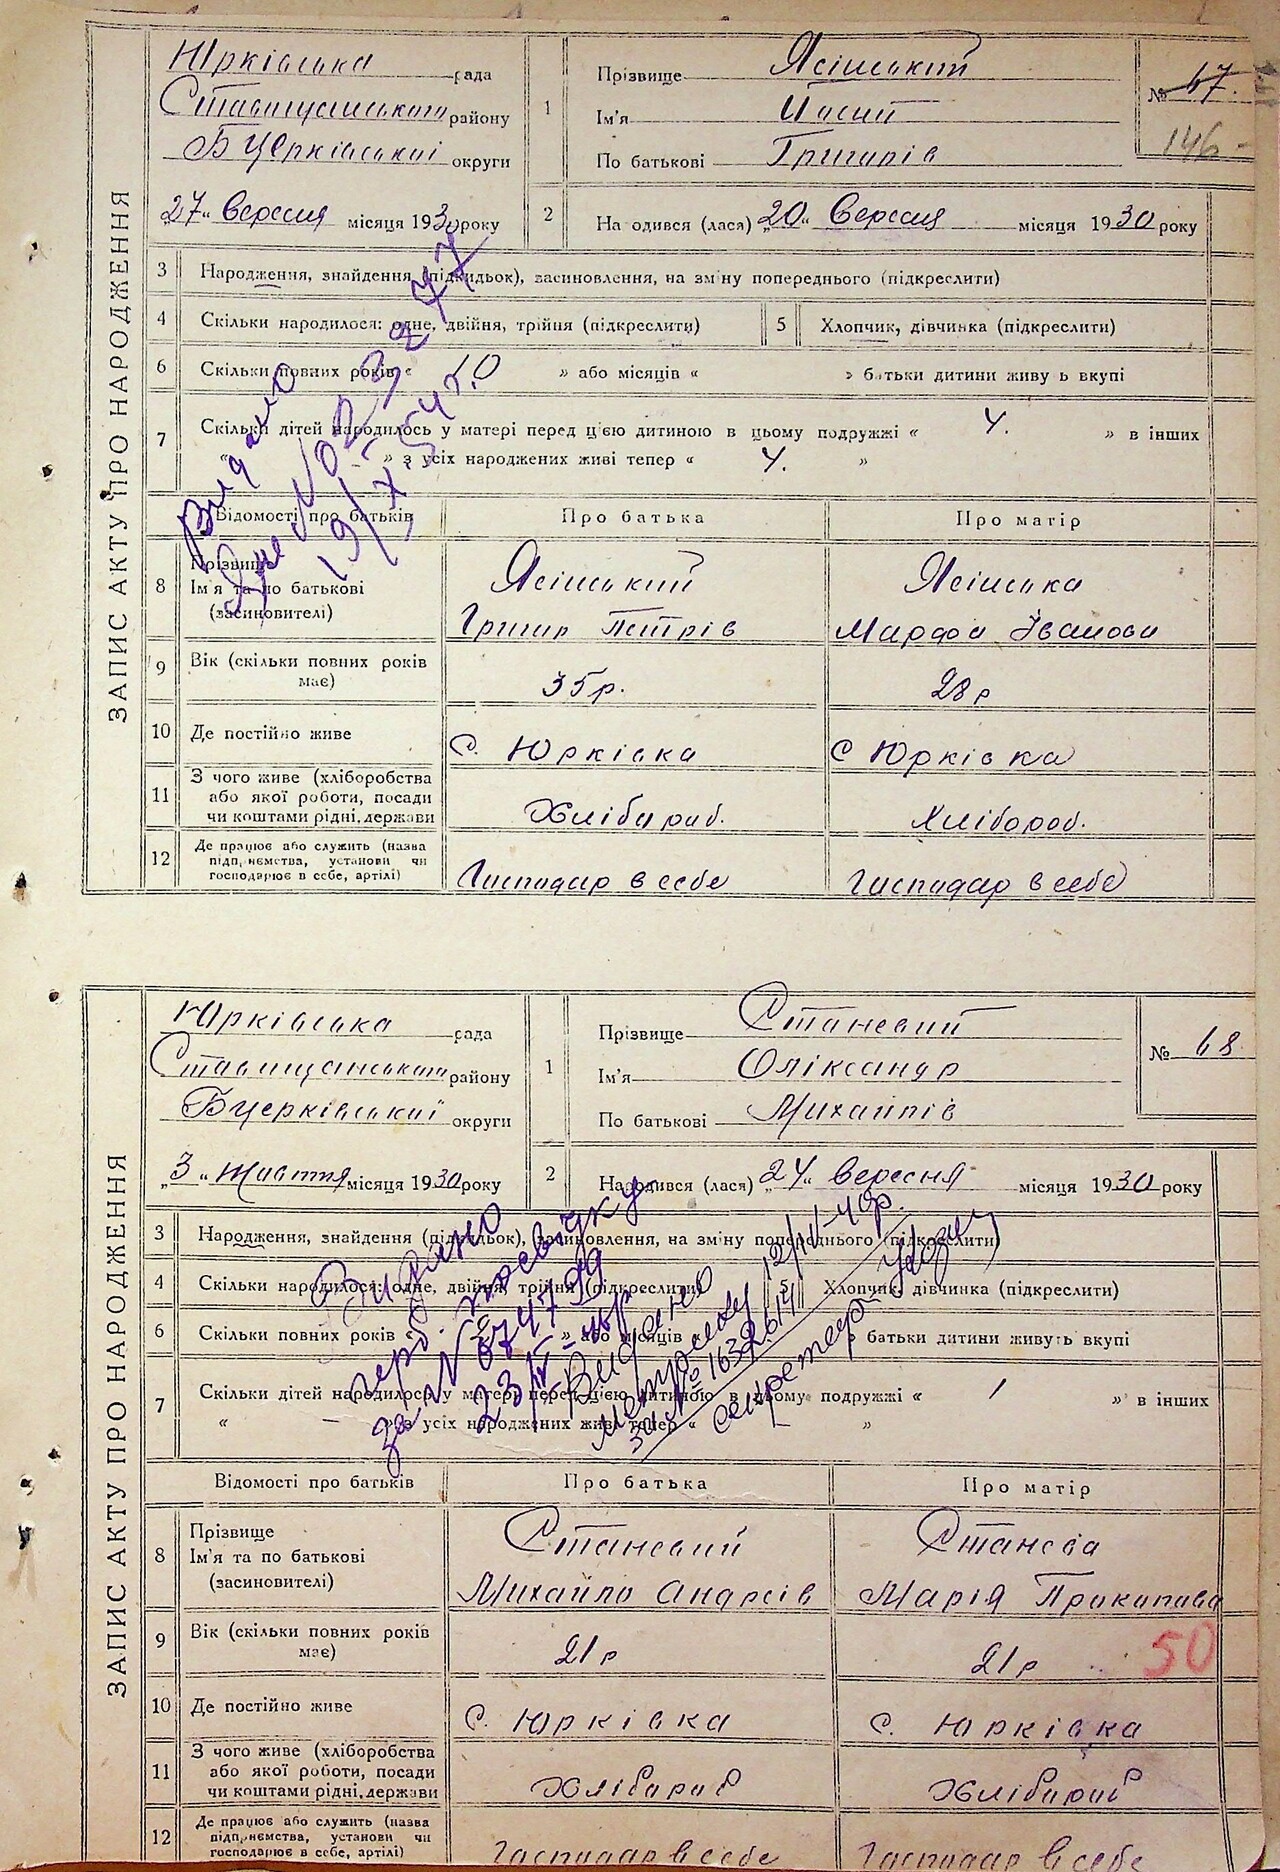 ЗАПИС АКТУ ПРО НАРОДЖЕННЯ
Юрківська рада
Ставищанського району
Б Церківської округи
„27“ Вересня місяця 1930 року
1 Прізвище Ясінський
Ім'я
По батькові Григорів
№ 67.
146 -
2 На одився (лася) „20“ Вересня місяця 1930 року
3 Народження, знайдення (підкидьок), засиновлення, на зміну попереднього (підкреслити)
4 Скільки народилося: одне, двійня, трійня (підкреслити)
5 Хлопчик, дівчинка (підкреслити)
6 Скільки повних років « 10 » або місяців « » батьки дитини живу ь вкупі
7 Скільки дітей народилось у матері перед цією дитиною в цьому подружжі « 4. » в інших
« » з усіх народжених живі тепер « 4. »
Видано
19/X 54 р.
Відомості про батьків Про батька Про матір
8 Прізвище
Ім'я та по батькові
(засиновителі)
Ясінський
Григор Петрів
Ясінська
Марфа Іванова
9 Вік (скільки повних років має) 35 р. 28 р
10 Де постійно живе С. Юрківка С Юрківка
11 З чого живе (хліборобства або якої роботи, посади чи коштами рідні, держави Хлібороб. Хлібороб.
12 Де працює або служить (назва підприємства, установи чи господарює в себе, артілі) Господар в себе Господар в себе
ЗАПИС АКТУ ПРО НАРОДЖЕННЯ
Юрківська рада
Ставищанського району
Б Церківської округи
„3“ Жовтня місяця 1930 року
1 Прізвище Становий
Ім'я Оліксандр
По батькові Михайлів
№ 68
2 Народився (лася) „24“ Вересня місяця 1930 року
3 Народження, знайдення (підкидьок), засиновлення, на зміну попереднього (підкреслити)
4 Скільки народилося: одне, двійня, трійня (підкреслити)
5 Хлопчик, дівчинка (підкреслити)
6 Скільки повних років « » або місяців « » батьки дитини живуть вкупі
7 Скільки дітей народилось у матері перед цією дитиною в цьому подружжі « 1 » в інших
« – » з усіх народжених живі тепер « »
Видано
за №
Видано
метрику 12/IV-40р.
за № 1632614
секретар
Відомості про батьків Про батька Про матір
8 Прізвище
Ім'я та по батькові
(засиновителі)
Становий
Михайло Андреів
Станова
Марія Прокопова
9 Вік (скільки повних років має) 21 р 21 р
50
10 Де постійно живе С. Юрківка С. Юрківка
11 З чого живе (хліборобства або якої роботи, посади чи коштами рідні, держави Хлібороб Хлібороб
12 Де працює або служить (назва підприємства, установи чи господарює в себе, артілі) Господар в себе Господар в себе